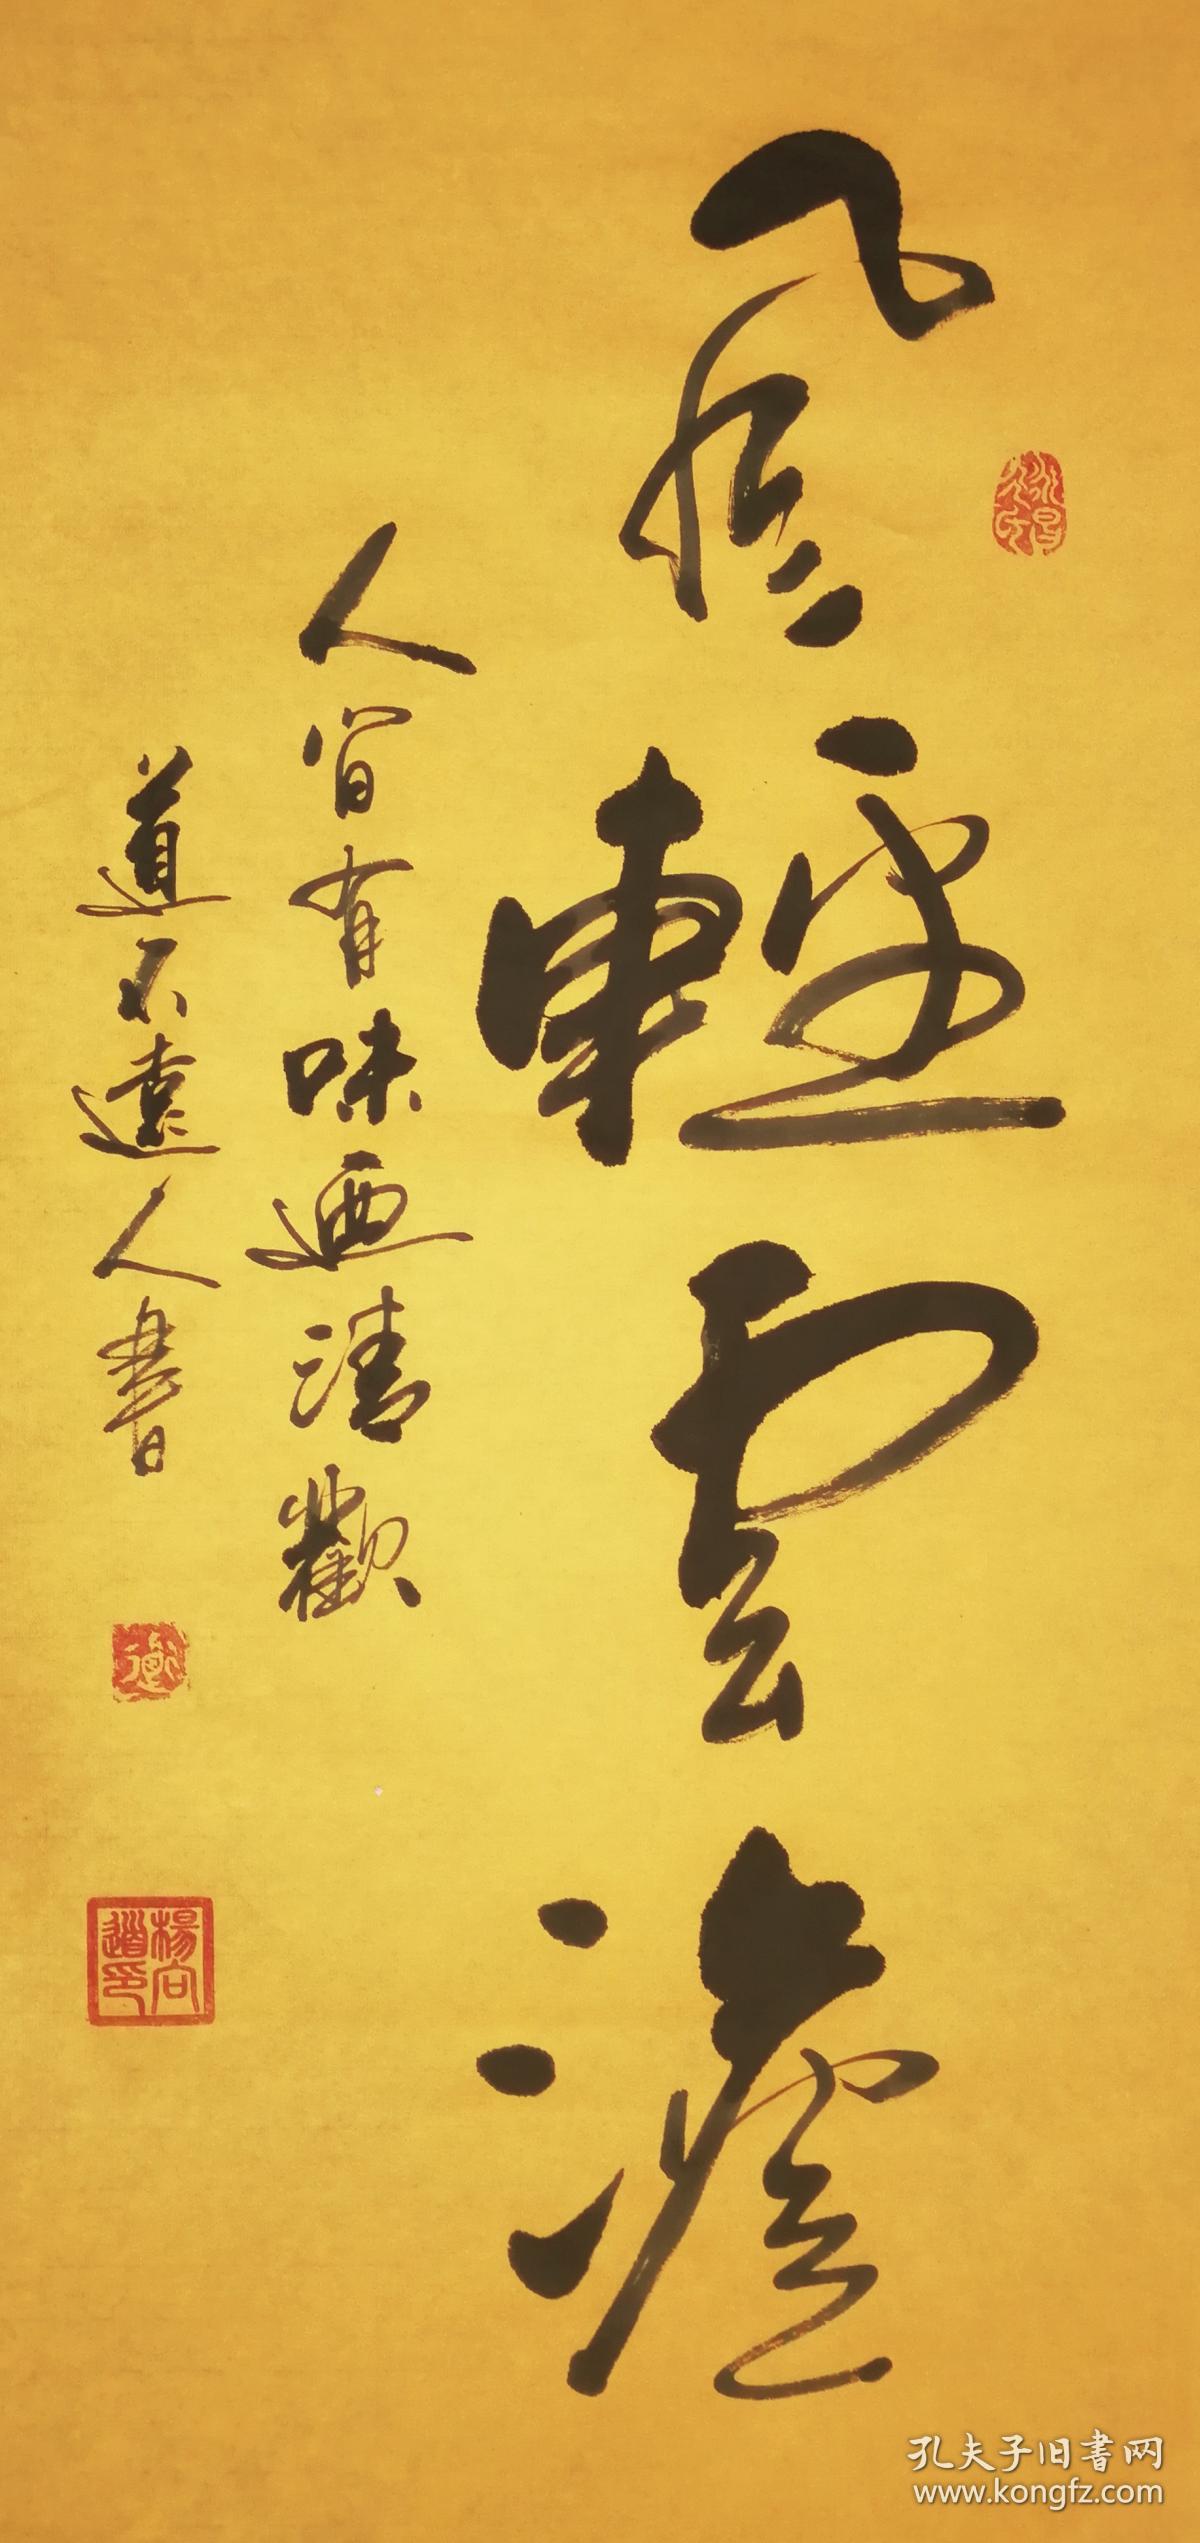 風輕雲澹
人間有味迺清歡
道不遠人書
楊向道印
孔夫子旧书网
www.kongfz.com